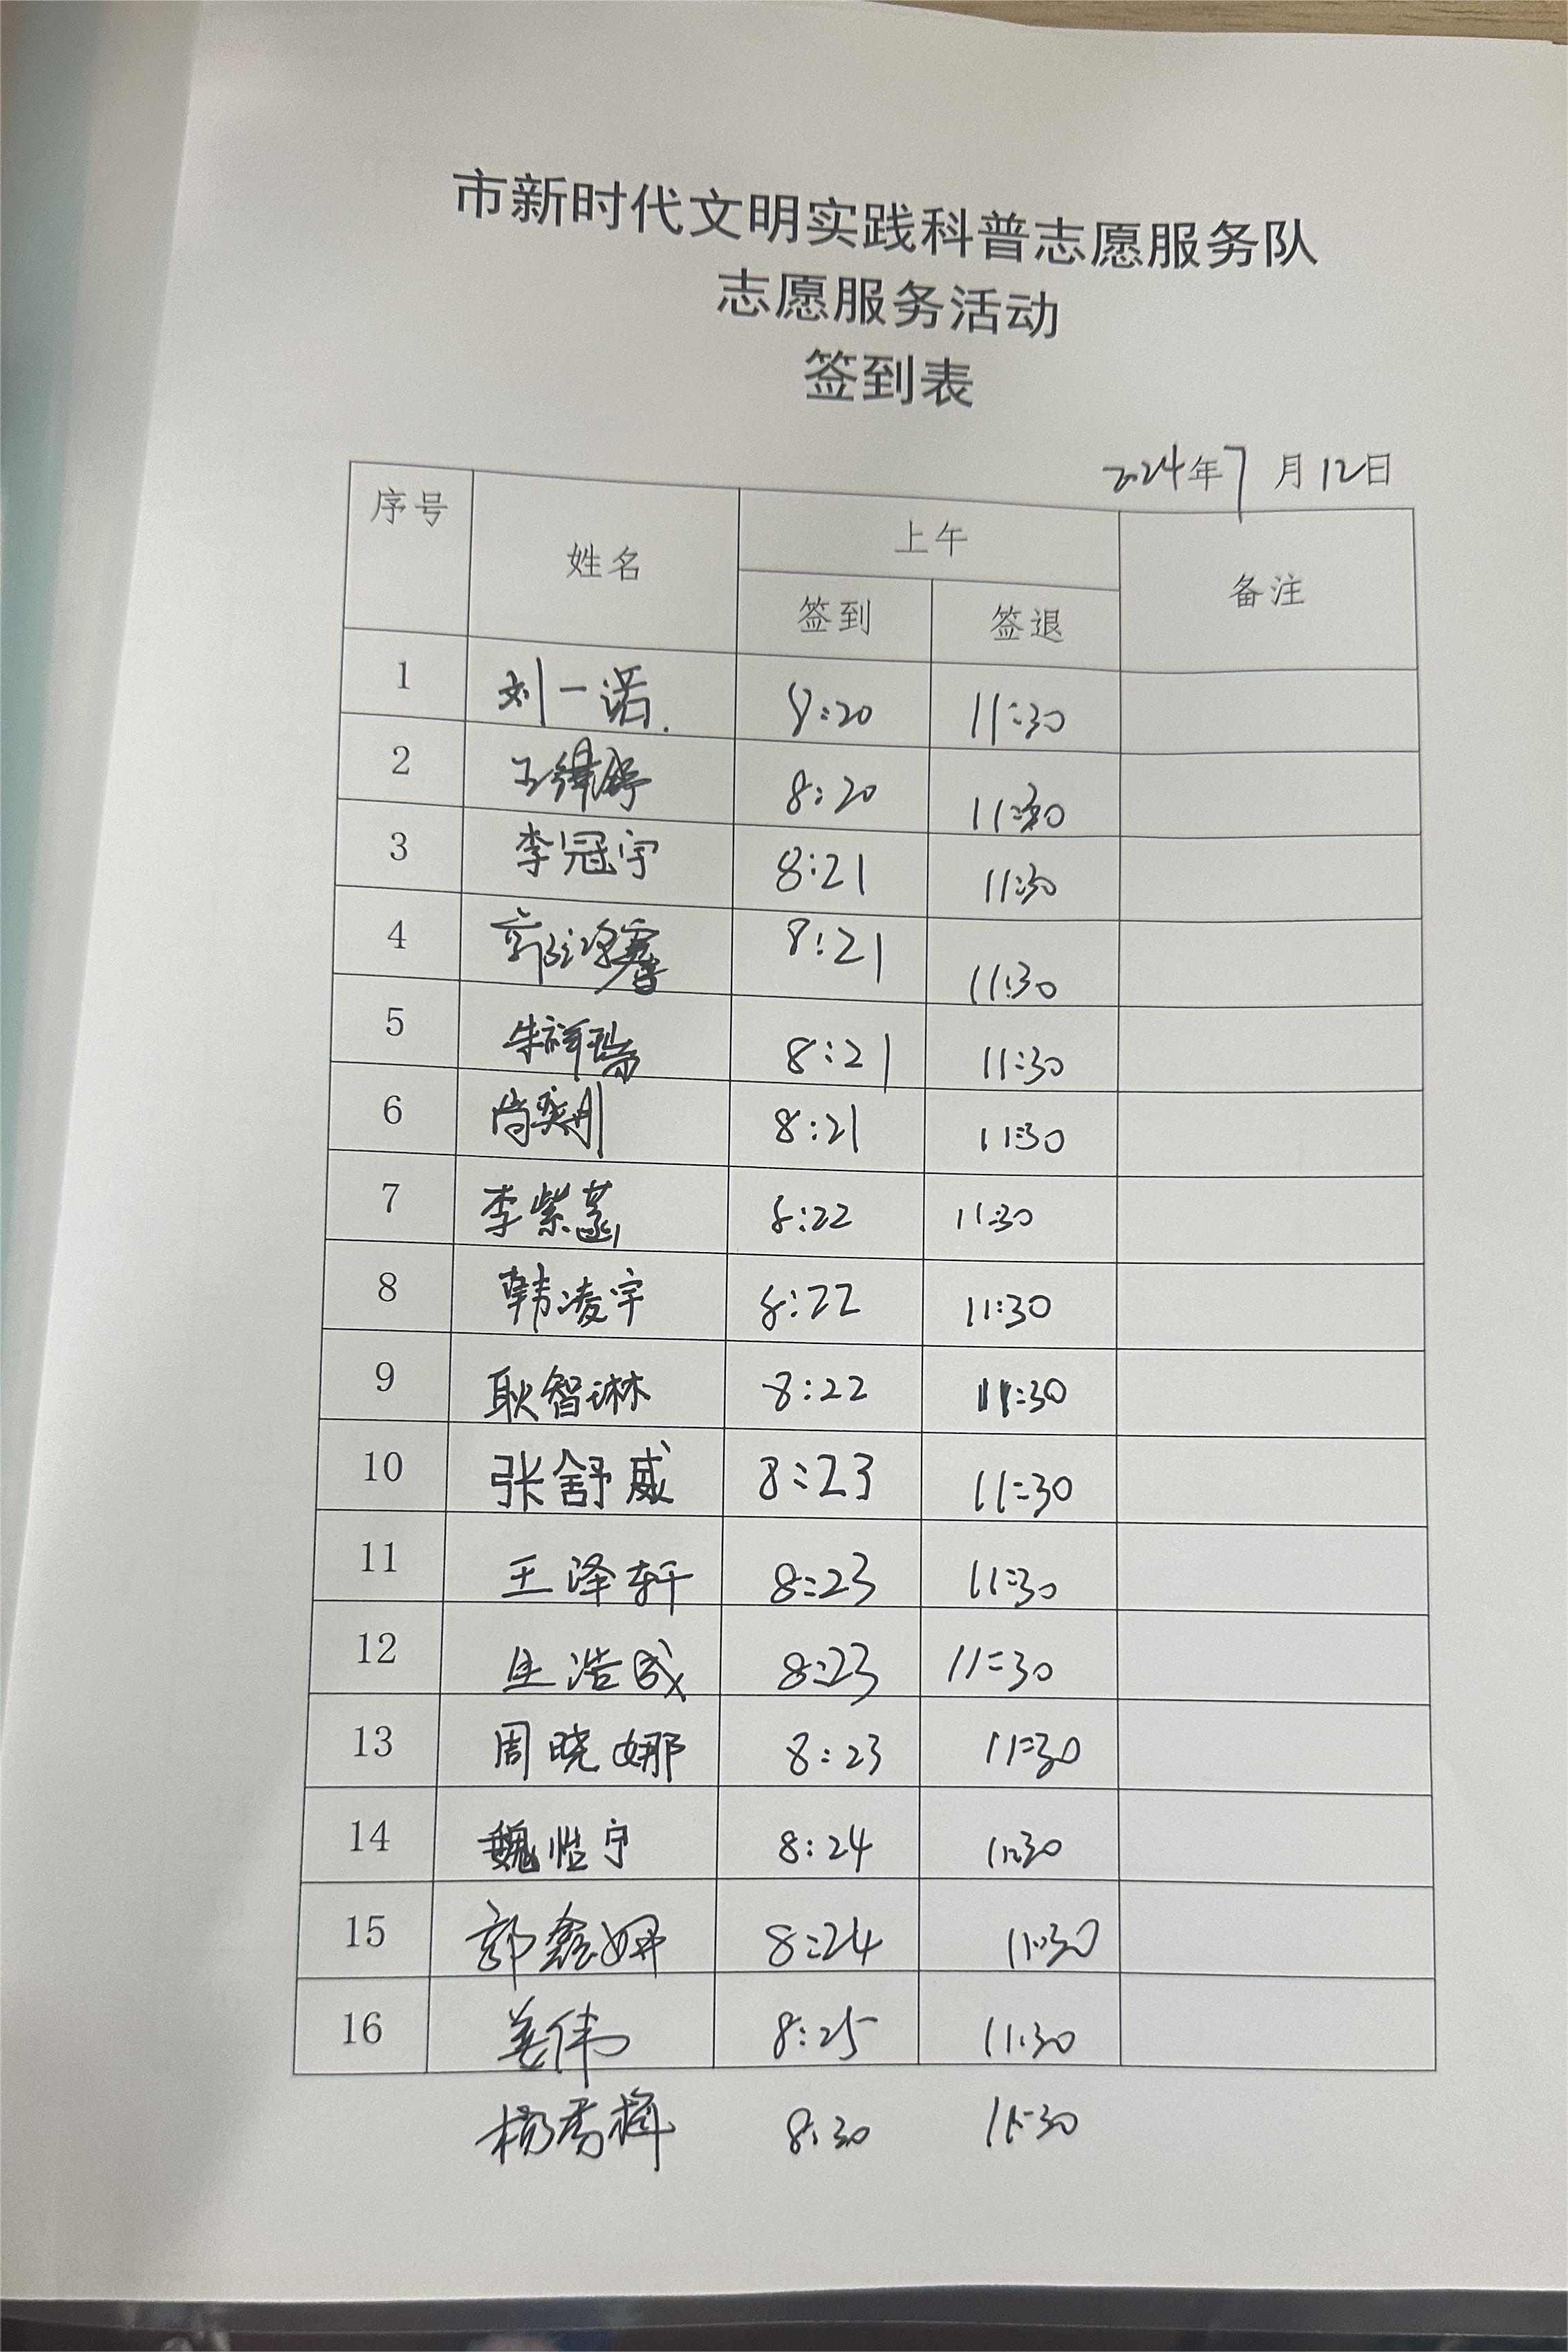 市新时代文明实践科普志愿服务队
志愿服务活动
签到表
2024年7月12日
序号 姓名 上午 备注
签到 签退
1 刘一诺 8:20 11:30
2 8:20 11:30
3 李冠宇 8:21 11:30
4 8:21 11:30
5 朱祥瑞 8:21 11:30
6 8:21 11:30
7 李紫菡 8:22 11:30
8 韩凌宇 8:22 11:30
9 耿智琳 8:22 11:30
10 张舒威 8:23 11:30
11 王泽轩 8:23 11:30
12 8:23 11:30
13 周晓娜 8:23 11:30
14 魏恺宁 8:24 11:30
15 郭鑫姗 8:24 11:30
16 姜伟 8:25 11:30
杨秀梅 8:30 11:30